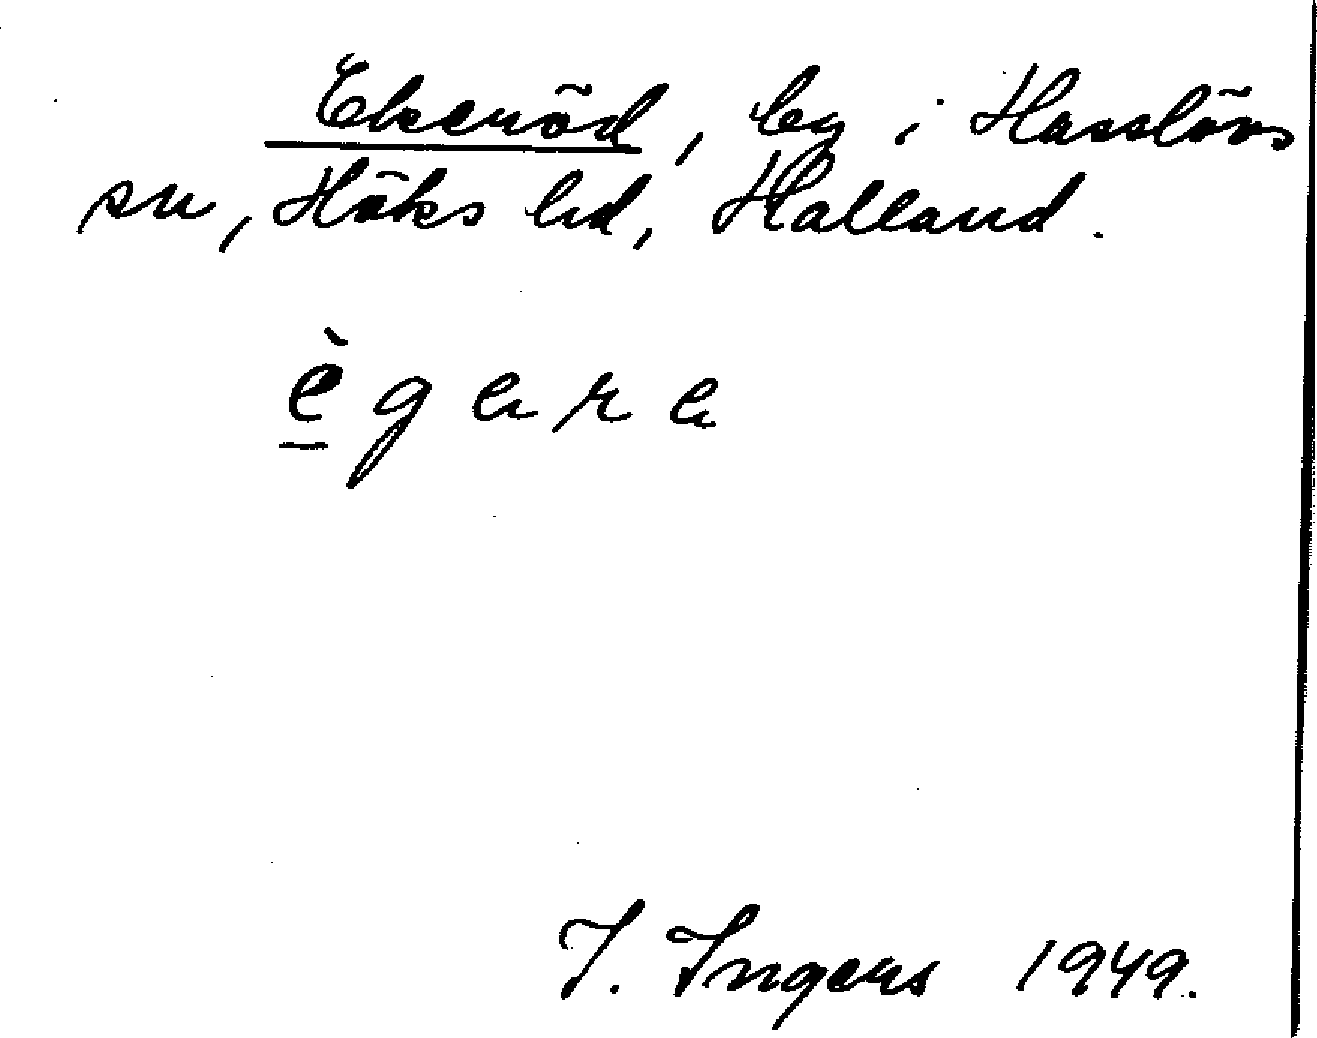 Ekeröd, by i Hasslövs
sn, Höks hd, Halland.
I. Ingers 1949.